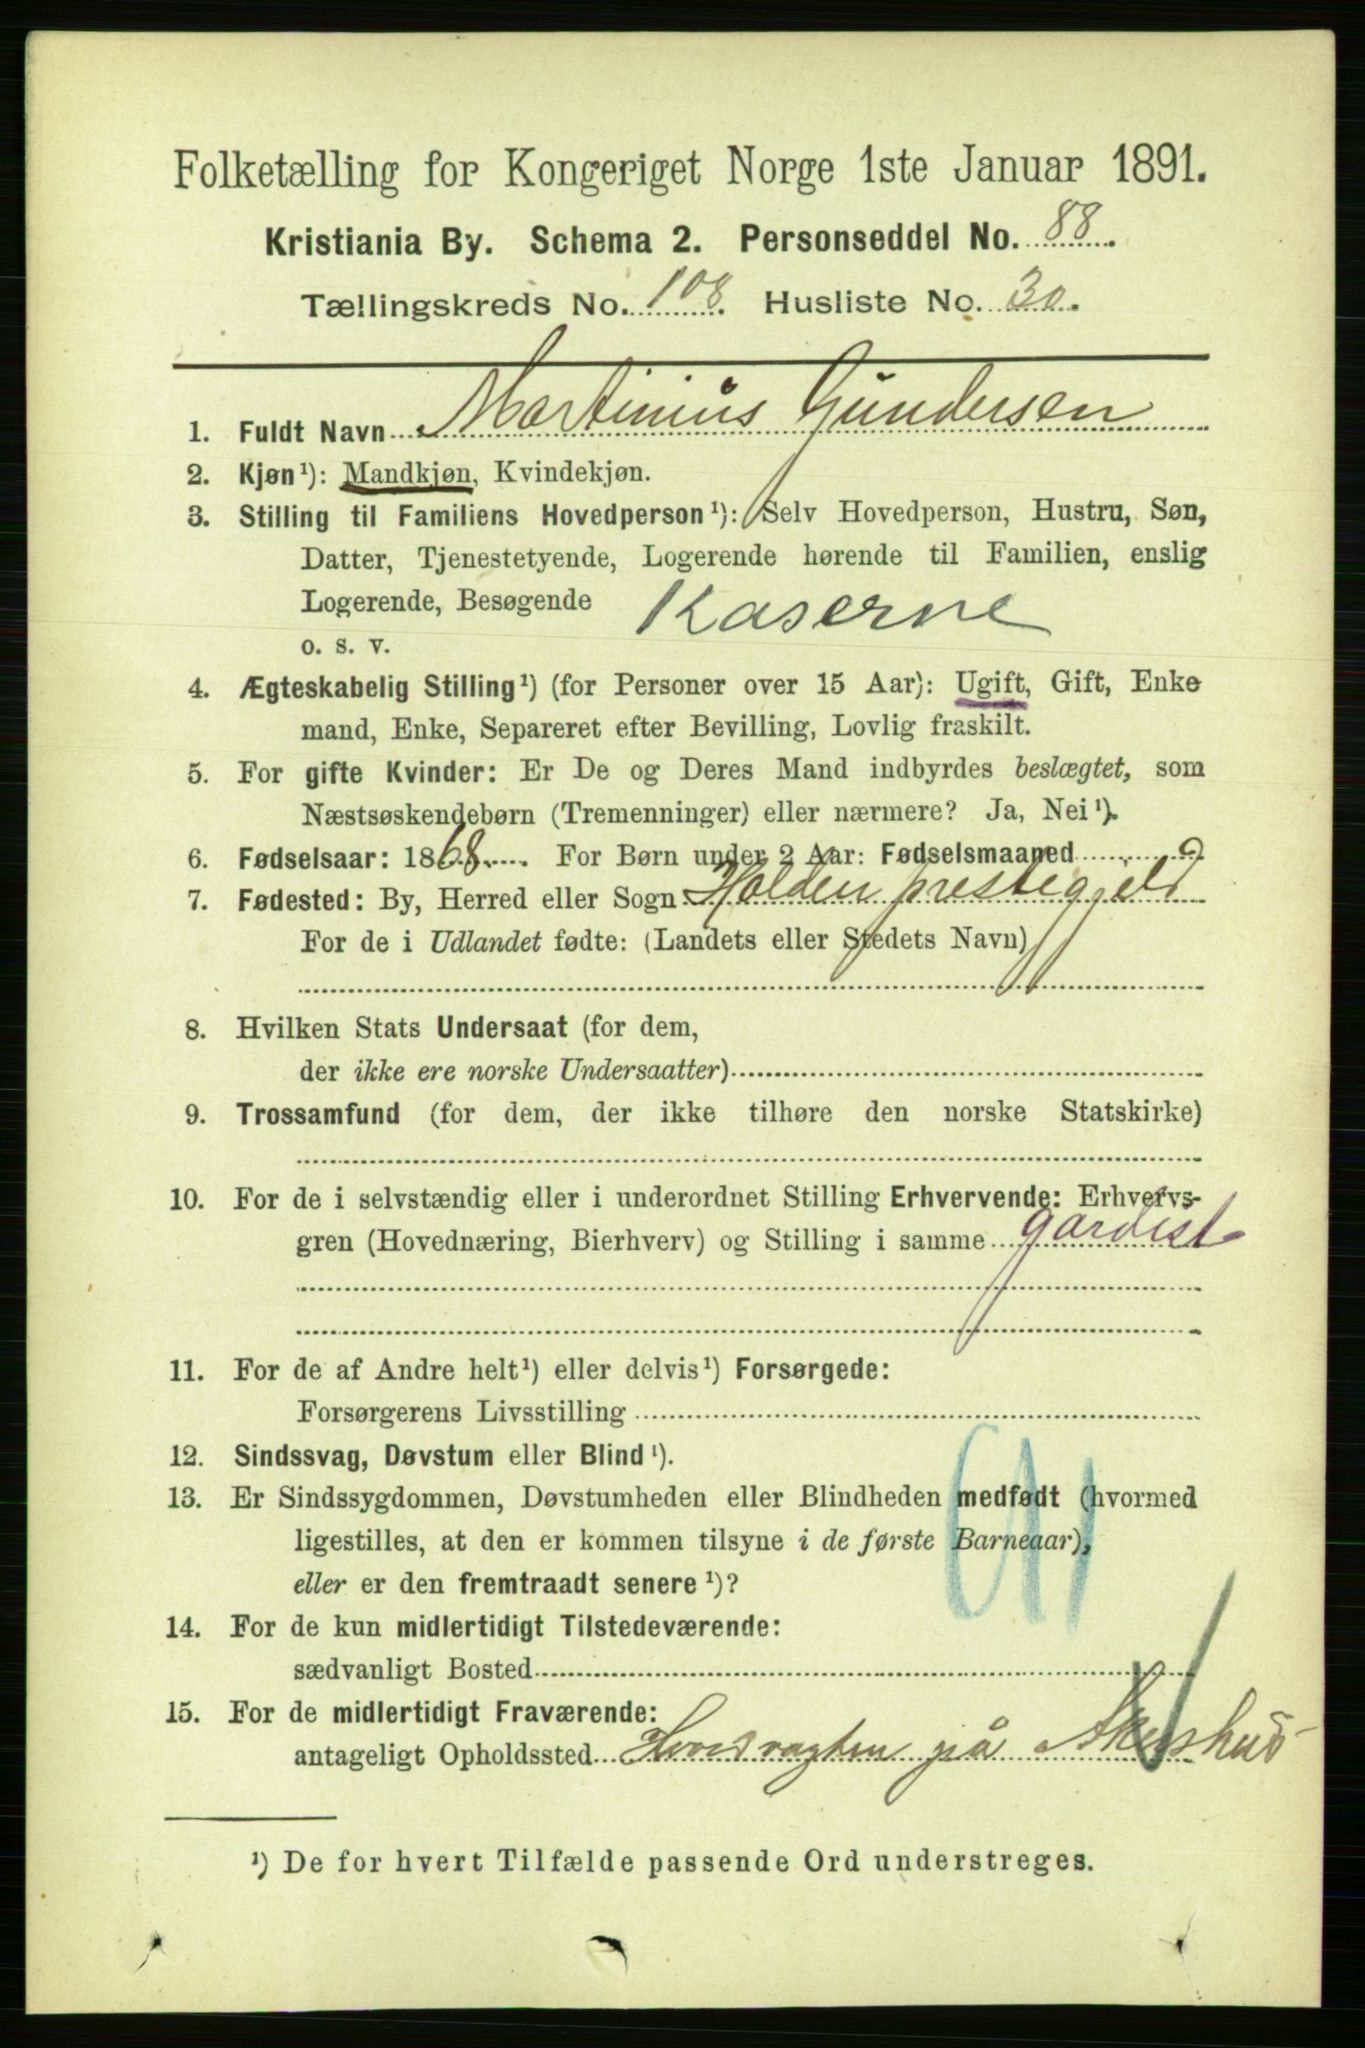 Folketælling for Kongeriget Norge 1ste Januar 1891.
Kristiania By. Schema 2. Personseddel No. 88.
Tællingskreds No. 108. Husliste No. 30.
1. Fuldt Navn Martinius Gundersen
2. Kjøn¹): Mandkjøn, Kvindekjøn.
3. Stilling til Familiens Hovedperson¹): Selv Hovedperson, Hustru, Søn,
Datter, Tjenestetyende, Logerende hørende til Familien, enslig
Logerende, Besøgende Kaserne
o. s. v.
4. Ægteskabelig Stilling¹) (for Personer over 15 Aar): Ugift, Gift, Enke
mand, Enke, Separeret efter Bevilling, Lovlig fraskilt.
5. For gifte Kvinder: Er De og Deres Mand indbyrdes beslægtet, som
Næstsøskendebørn (Tremenninger) eller nærmere? Ja, Nei¹).
6. Fødselsaar: 1868. For Børn under 2 Aar: Fødselsmaaned
7. Fødested: By, Herred eller Sogn Holden prestegjeld
For de i Udlandet fødte: (Landets eller Stedets Navn)
8. Hvilken Stats Undersaat (for dem,
der ikke ere norske Undersaatter)
9. Trossamfund (for dem, der ikke tilhøre den norske Statskirke)
10. For de i selvstændig eller i underordnet Stilling Erhvervende: Erhvervs-
gren (Hovednæring, Bierhverv) og Stilling i samme gardist
11. For de af Andre helt¹) eller delvis¹) Forsørgede:
Forsørgerens Livsstilling
12. Sindssvag, Døvstum eller Blind¹).
13. Er Sindssygdommen, Døvstumheden eller Blindheden medfødt (hvormed
ligestilles, at den er kommen tilsyne i de første Barneaar),
eller er den fremtraadt senere¹)?
14. For de kun midlertidigt Tilstedeværende:
sædvanligt Bosted
15. For de midlertidigt Fraværende:
antageligt Opholdssted Hovedvagten på Akershus
¹) De for hvert Tilfælde passende Ord understreges.